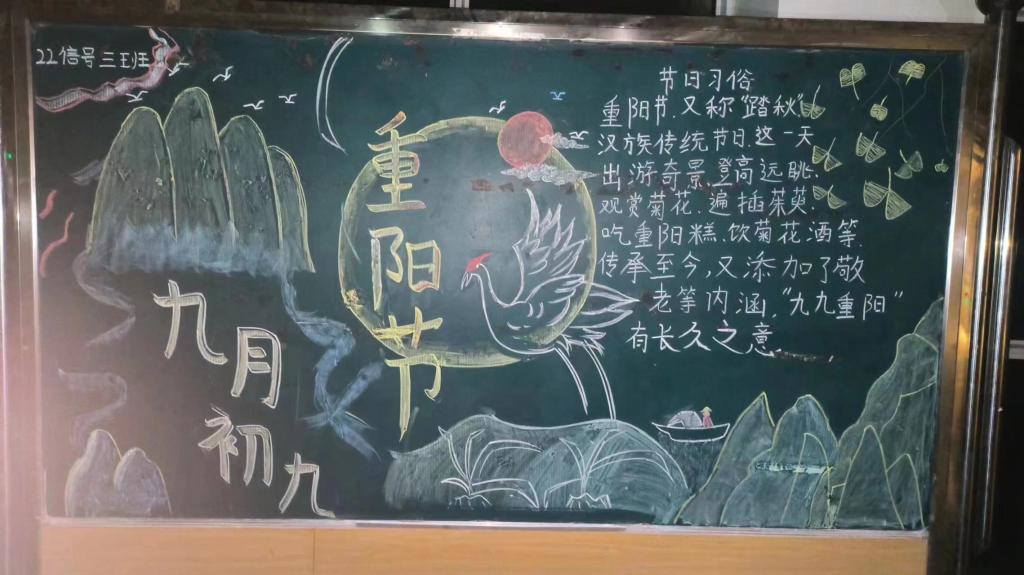 22信号三班
重阳节
九月初九
节日习俗
重阳节,又称"踏秋"
汉族传统节日.这一天
出游奇景登高远眺.
观赏菊花、遍插茱萸.
吃重阳糕、饮菊花酒等.
传承至今,又添加了敬
老等内涵,"九九重阳"
有长久之意